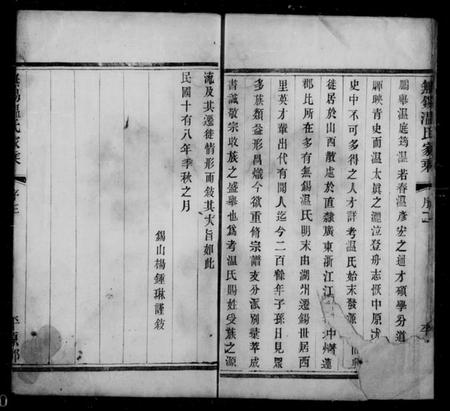 無錫温氏家乘
序二
賜舉温庭筠温若春温彥宏之通才碩學分道
輝映青史而温太眞之灑泣登舟志恢中原尤
史中不可多得之人才詳考温氏始末發源
徙居於山西散處於直隸廣東浙江江 中州遷
郡比所在多有無錫温氏明末由湖州遷錫世居西
里英才輩出代有聞人迄今二百餘年子孫日見眾
多族類益形昌熾今欲重修宗譜支分派別彙萃成
書誠敬宗收族之盛舉也爲考温氏賜姓受族之源
流及其遷徙情形而敍其大旨如此
民國十有八年季秋之月
錫山楊鍾琳謹敍
無錫温氏家乘
序三